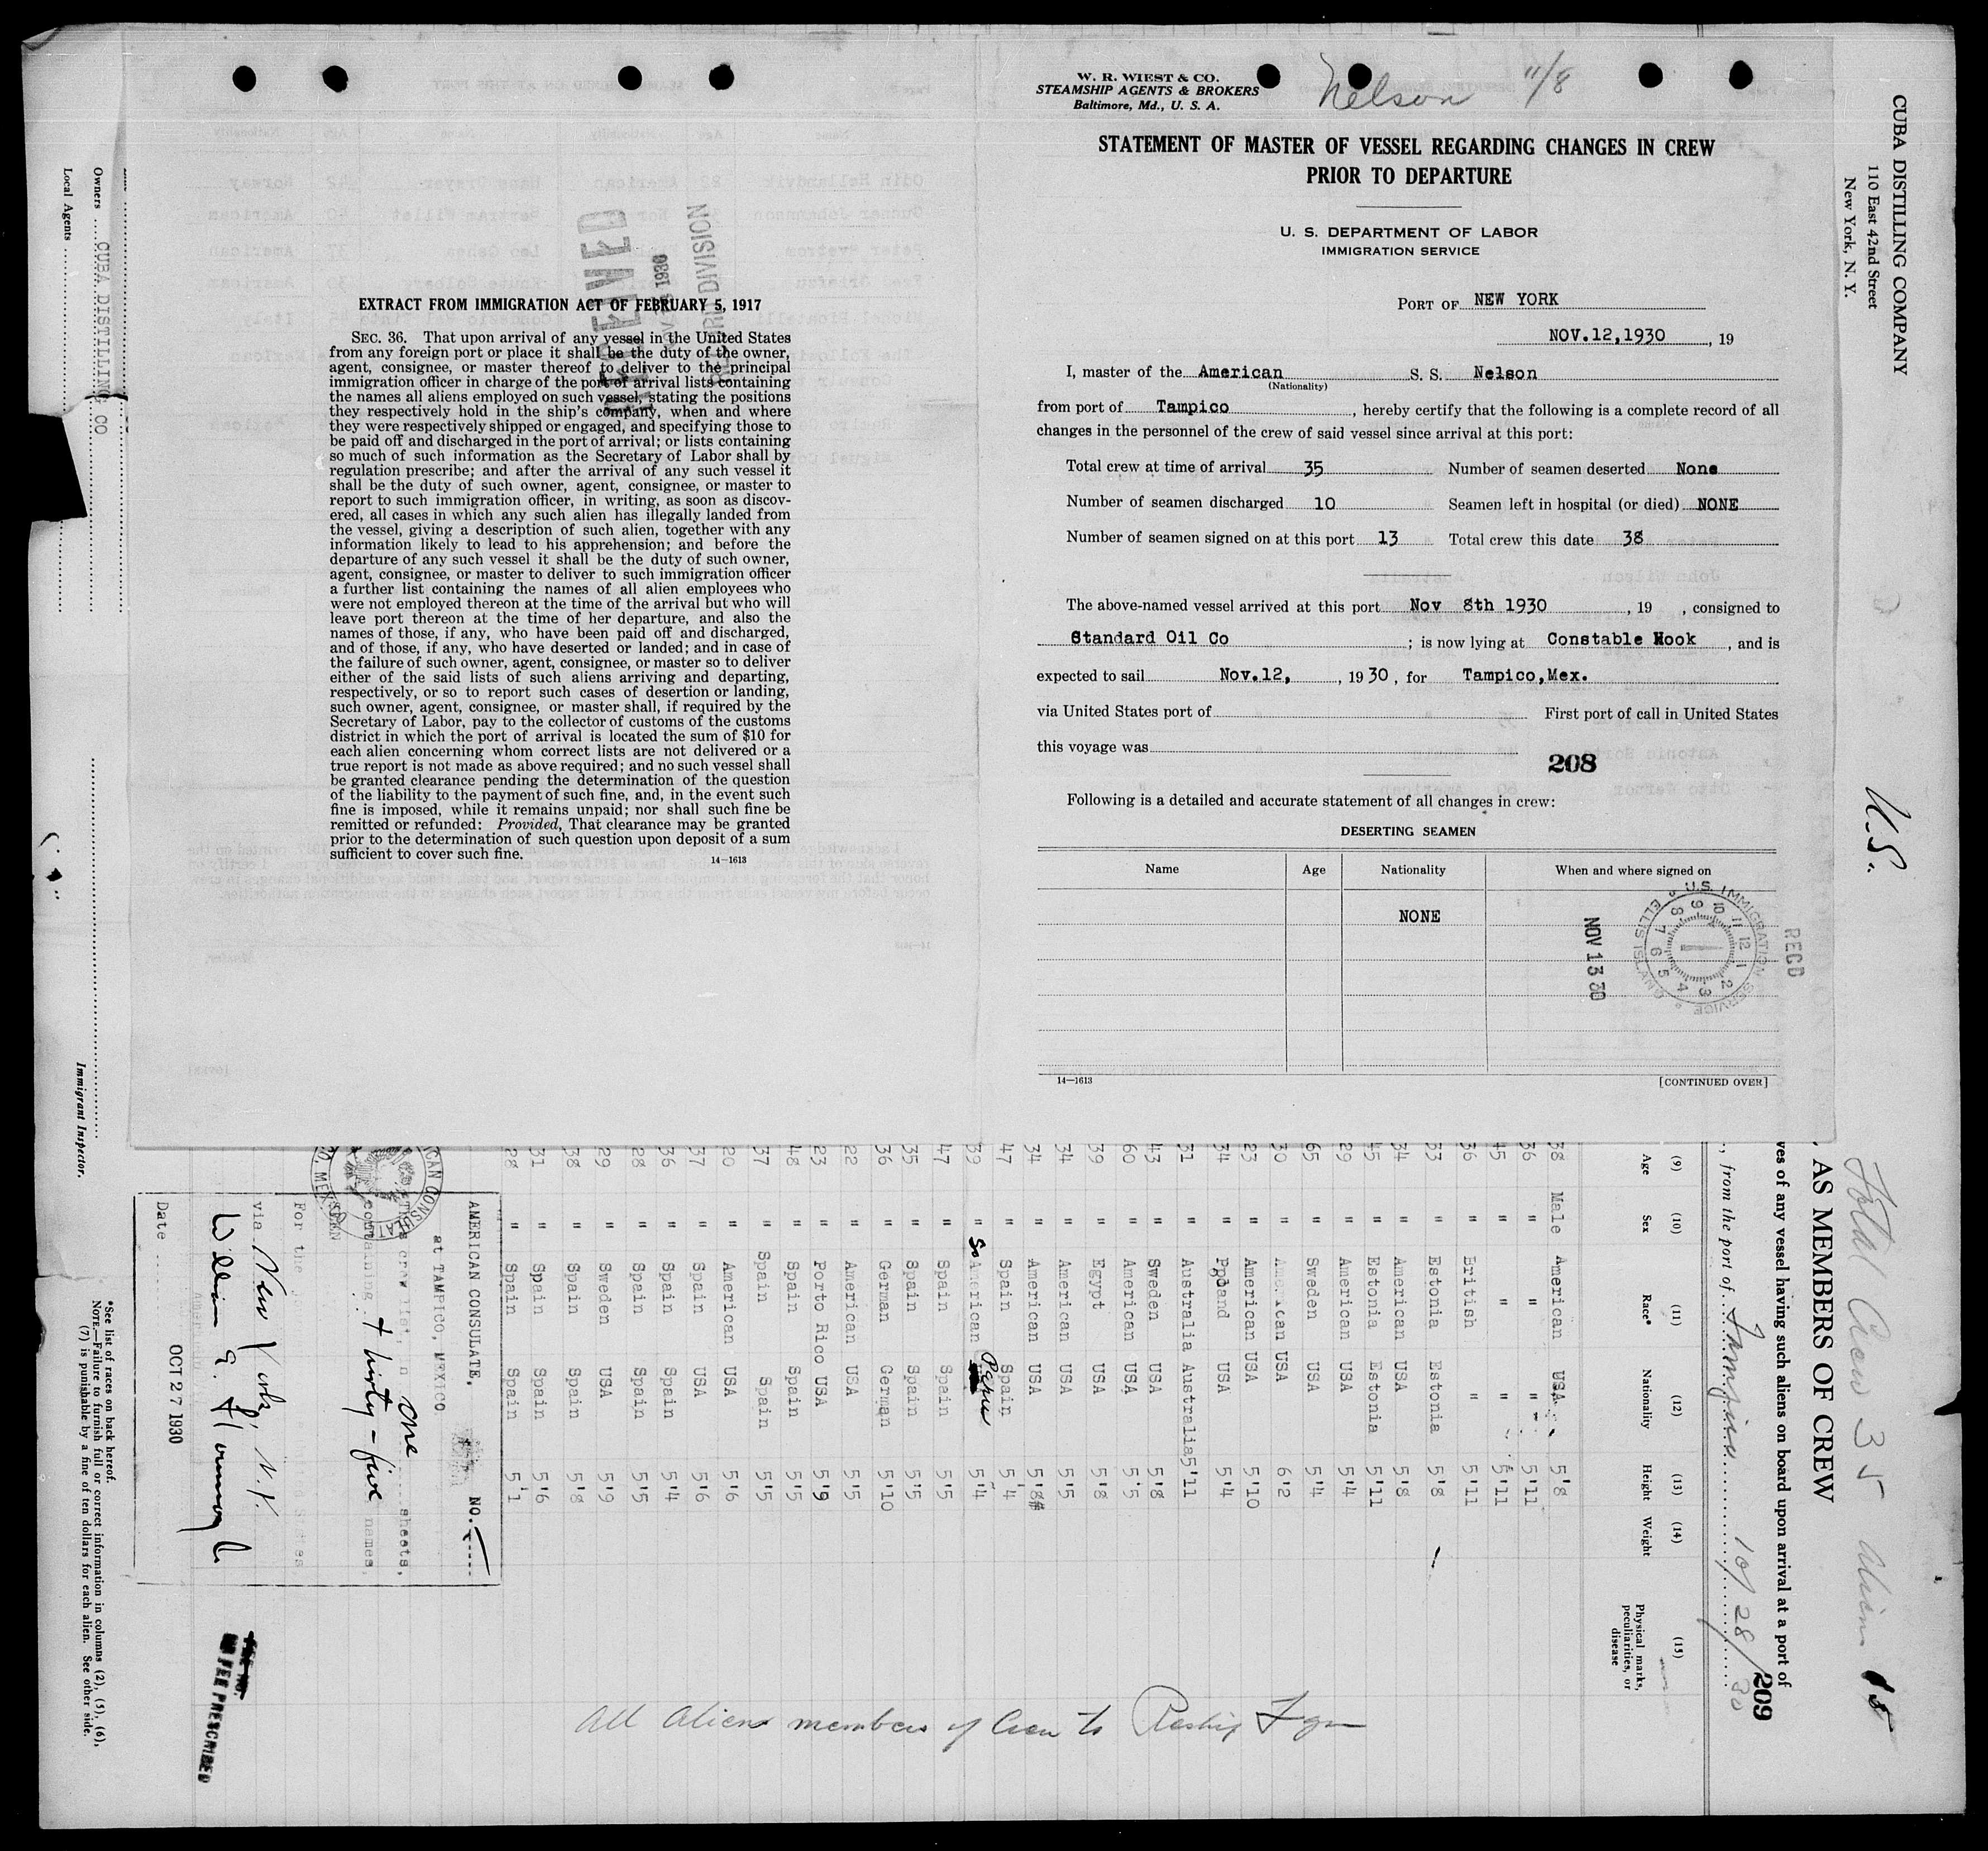 W. R. WIEST & CO.
STEAMSHIP AGENTS & BROKERS
Baltimore, Md., U. S. A.
Nelson 11/8
STATEMENT OF MASTER OF VESSEL REGARDING CHANGES IN CREW
PRIOR TO DEPARTURE
U. S. DEPARTMENT OF LABOR
IMMIGRATION SERVICE
PORT OF NEW YORK
NOV.12,1930, 19
I, master of the American S. S. Nelson
(Nationality)
from port of Tampico, hereby certify that the following is a complete record of all
changes in the personnel of the crew of said vessel since arrival at this port:
Total crew at time of arrival 35 Number of seamen deserted None
Number of seamen discharged 10 Seamen left in hospital (or died) NONE
Number of seamen signed on at this port 13 Total crew this date 38
The above-named vessel arrived at this port Nov 8th 1930, 19 , consigned to
Standard Oil Co ; is now lying at Constable Hook, and is
expected to sail Nov.12, , 1930, for Tampico,Mex.
via United States port of First port of call in United States
this voyage was
208
Following is a detailed and accurate statement of all changes in crew:
DESERTING SEAMEN
Name Age Nationality When and where signed on
NONE
RECD
U.S. IMMIGRATION SERVICE
ELLIS ISLAND
NOV 13 30
14—1613 [CONTINUED OVER]
EXTRACT FROM IMMIGRATION ACT OF FEBRUARY 5, 1917
SEC. 36. That upon arrival of any vessel in the United States
from any foreign port or place it shall be the duty of the owner,
agent, consignee, or master thereof to deliver to the principal
immigration officer in charge of the port of arrival lists containing
the names all aliens employed on such vessel, stating the positions
they respectively hold in the ship's company, when and where
they were respectively shipped or engaged, and specifying those to
be paid off and discharged in the port of arrival; or lists containing
so much of such information as the Secretary of Labor shall by
regulation prescribe; and after the arrival of any such vessel it
shall be the duty of such owner, agent, consignee, or master to
report to such immigration officer, in writing, as soon as discov-
ered, all cases in which any such alien has illegally landed from
the vessel, giving a description of such alien, together with any
information likely to lead to his apprehension; and before the
departure of any such vessel it shall be the duty of such owner,
agent, consignee, or master to deliver to such immigration officer
a further list containing the names of all alien employees who
were not employed thereon at the time of the arrival but who will
leave port thereon at the time of her departure, and also the
names of those, if any, who have been paid off and discharged,
and of those, if any, who have deserted or landed; and in case of
the failure of such owner, agent, consignee, or master so to deliver
either of the said lists of such aliens arriving and departing,
respectively, or so to report such cases of desertion or landing,
such owner, agent, consignee, or master shall, if required by the
Secretary of Labor, pay to the collector of customs of the customs
district in which the port of arrival is located the sum of $10 for
each alien concerning whom correct lists are not delivered or a
true report is not made as above required; and no such vessel shall
be granted clearance pending the determination of the question
of the liability to the payment of such fine, and, in the event such
fine is imposed, while it remains unpaid; nor shall such fine be
remitted or refunded: Provided, That clearance may be granted
prior to the determination of such question upon deposit of a sum
sufficient to cover such fine. 14—1613
DIVISION
CUBA DISTILLING COMPANY
110 East 42nd Street
New York, N. Y.
U.S.
Total Crew 35 Aliens 15
AS MEMBERS OF CREW
ves of any vessel having such aliens on board upon arrival at a port of
209
, from the port of Tampico 10/28/30
(9) (10) (11) (12) (13) (14) (15)
Age Sex Race* Nationality Height Weight Physical marks, peculiarities, or disease
38 Male American USA 5'8
36 " " " 5'11
45 " " " 5'11
36 " British " 5'11
33 " Estonia Estonia 5'8
34 " American USA 5'8
45 " Estonia Estonia 5'11
29 " American USA 5'4
65 " Sweden USA 5'4
30 " American USA 6'2
23 " American USA 5'10
34 " Poland USA 5'4
31 " Australia Australia 5'11
43 " Sweden USA 5'8
60 " American USA 5'5
39 " Egypt USA 5'8
34 " American USA 5'5
34 " American USA 5'8
47 " Spain Spain 5'4
39 " So American Peru 5'4
47 " Spain Spain 5'5
35 " Spain Spain 5'5
36 " German German 5'10
22 " American USA 5'5
23 " Porto Rico USA 5'9
48 " Spain Spain 5'5
37 " Spain Spain 5'5
20 " American USA 5'6
37 " Spain USA 5'6
36 " Spain Spain 5'4
28 " Spain Spain 5'5
29 " Sweden USA 5'9
38 " Spain Spain 5'8
31 " Spain Spain 5'6
28 " Spain Spain 5'1
AMERICAN CONSULATE, NO.
at TAMPICO, MEXICO
This crew list, in one sheets,
containing thirty-five names,
For the
via New York, N.Y.
Date OCT 27 1930
NO FEE PRESCRIBED
All Aliens members of Crew to Reship Fgn
*See list of races on back hereof.
NOTE.—Failure to furnish full or correct information in columns (2), (5), (6),
(7) is punishable by a fine of ten dollars for each alien. See other side.
Owners CUBA DISTILLING CO
Local Agents
Immigrant Inspector.